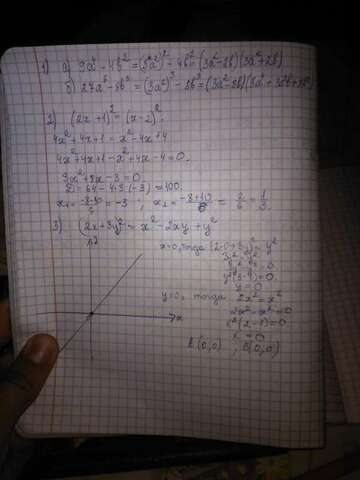 1) а) 9a⁴ - 4b² = (3a²)² - 4b² = (3a² - 2b)(3a² + 2b)
б) 27a⁶ - 8b³ = (3a²)³ - 2b³ = (3a² - 2b)(
2) (2x + 1)² = (x - 2)²;
4x² + 4x + 1 = x² - 4x + 4
4x² + 4x + 1 - x² + 4x - 4 = 0.
3x² + 8x - 3 = 0.
D = 64 - 4·3·(-3) = 100.
x₁ = = -3 ; x₂ = (-8 + 10)/6 = 2/6 = 1/3.
3) (2x + 3y)² = x² - 2xy + y²
x = 0, тогда (2·0 + 3y)² = y²
y = 0
y = 0, тогда 2x² = x²
2x² - x² = 0
x²(2 - 1) = 0
x = 0
x
(0,0) , B(0,0)